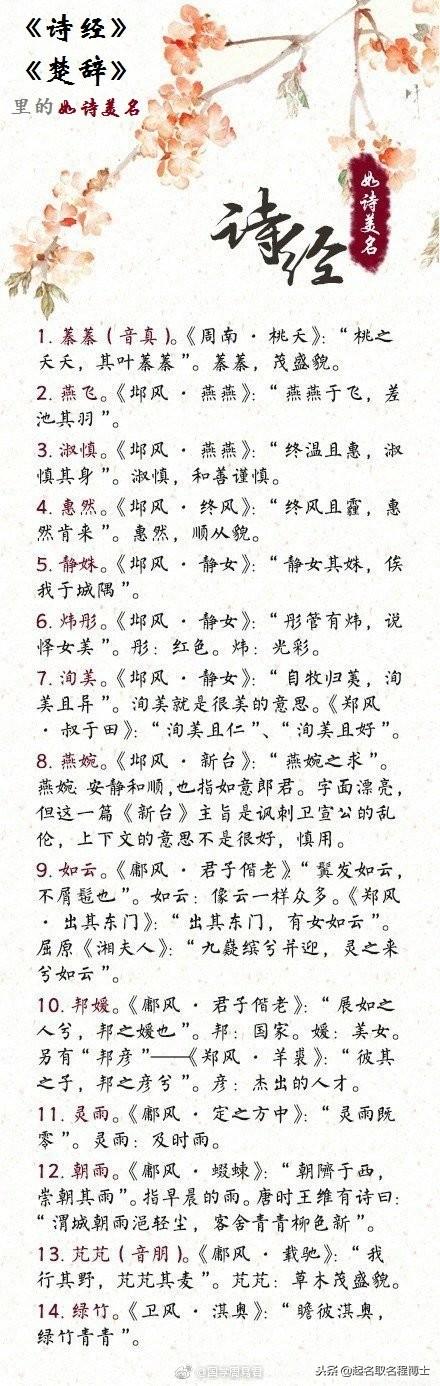 《诗经》
《楚辞》
里的如诗美名
诗经
如诗美名
1. 蓁蓁（音真）。《周南·桃夭》：“桃之
夭夭，其叶蓁蓁”。蓁蓁，茂盛貌。
2. 燕飞。《邶风·燕燕》：“燕燕于飞，差
池其羽”。
3. 淑慎。《邶风·燕燕》：“终温且惠，淑
慎其身”。淑慎，和善谨慎。
4. 惠然。《邶风·终风》：“终风且霾，惠
然肯来”。惠然，顺从貌。
5. 静姝。《邶风·静女》：“静女其姝，俟
我于城隅”。
6. 炜彤。《邶风·静女》：“彤管有炜，说
怿女美”。彤：红色。炜：光彩。
7. 洵美。《邶风·静女》：“自牧归荑，洵
美且异”。洵美就是很美的意思。《郑风
·叔于田》：“洵美且仁”、“洵美且好”。
8. 燕婉。《邶风·新台》：“燕婉之求”。
燕婉:安静和顺,也指如意郎君。字面漂亮，
但这一篇《新台》主旨是讽刺卫宣公的乱
伦，上下文的意思不是很好，慎用。
9. 如云。《鄘风·君子偕老》“鬒发如云，
不屑髢也”。如云：像云一样众多。《郑风
·出其东门》：“出其东门，有女如云”。
屈原《湘夫人》：“九嶷缤兮并迎，灵之来
兮如云”。
10. 邦媛。《鄘风·君子偕老》：“展如之
人兮，邦之媛也”。邦：国家。媛：美女。
另有“邦彦”——《郑风·羊裘》：“彼其
之子，邦之彦兮”。彦：杰出的人才。
11. 灵雨。《鄘风·定之方中》：“灵雨既
零”。灵雨：及时雨。
12. 朝雨。《鄘风·蝃蝀》：“朝隮于西，
崇朝其雨”。指早晨的雨。唐时王维有诗曰：
“渭城朝雨浥轻尘，客舍青青柳色新”。
13. 芃芃（音朋）。《鄘风·载驰》：“我
行其野，芃芃其麦”。芃芃：草木茂盛貌。
14. 绿竹。《卫风·淇奥》：“瞻彼淇奥，
绿竹青青”。
@国学周易君
头条 @起名取名程博士